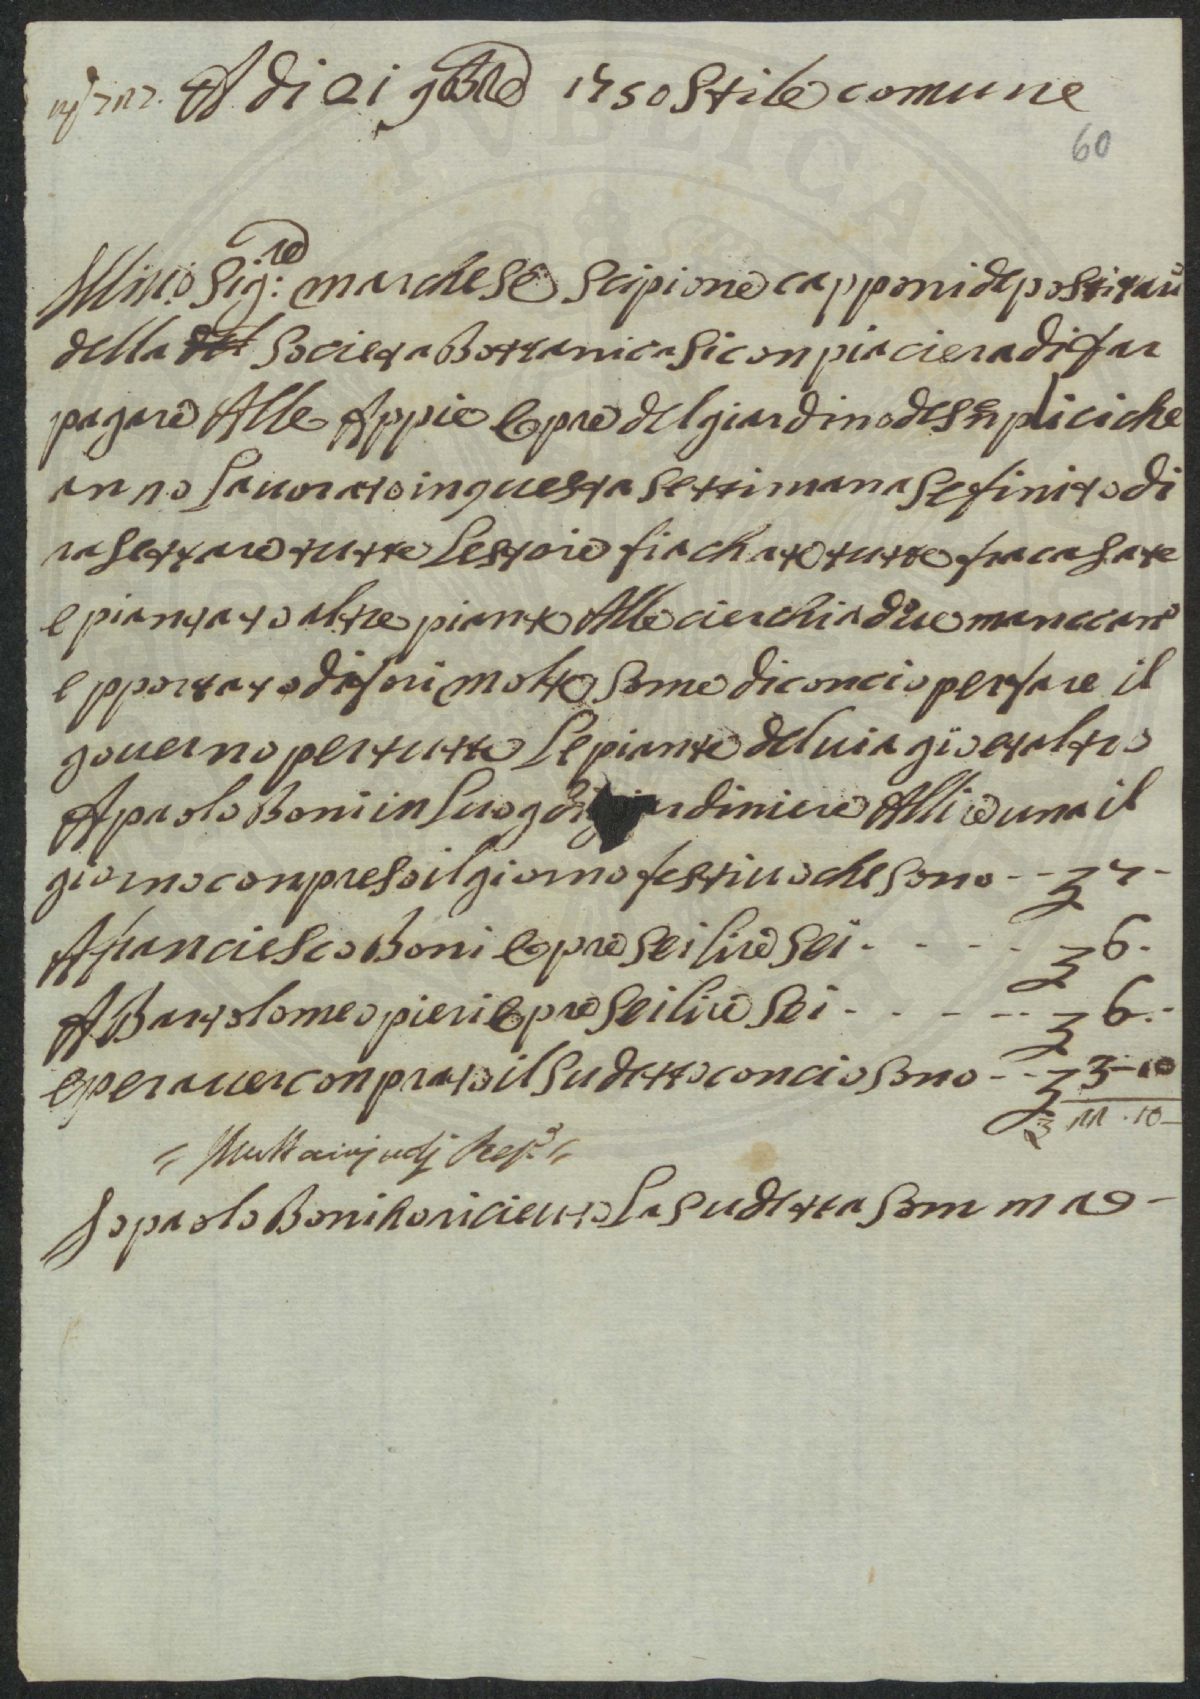 A di 21 9bre 1750 Stile comune
60
Ill.mo Sig:re marchese Scipione capponi depositaŕ
della Societa Bottanica si conpiaciera di far
pagare Alle Appie Opre del giardino de senplici che
anno Lavorato in questa Settimana Se finito di
rasettare tutte Lestoie fiachate tutte fracasate
e piantato altre piante Alle cierchiadue mancare
e pportato di fori molte Some di concio per fare il
governo per tutte Le piante del viagio et altro
A paolo Boni in Luogo di giardiniere Allire una il
giorno conpreso il giorno festivo che sono -- 7 -
A franciesco Boni Opre sei lire sei - - - - 6 -
A Bartolomeo pieri Opre sei lire sei - - - - - 6 -
e per aver conprato il sudetto concio sono -- 3-10
Io paolo Boni ho ricieuto La sudetta somma -